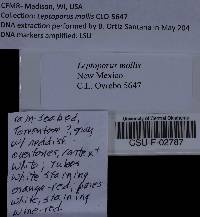 CFMR- Madison, WI, USA
Collection: Leptoporus mollis CLO 5647
DNA extraction performed by B. Ortiz Santana in May 204
DNA markers amplified: LSU
Leptoporus mollis
New Mexico
C.L. Ovrebo 5647
University of Central Oklahoma
CSU F 02787
tomentose ?, gray
w/ reddish
overtones, context
white; tubes
white staining
orange-red, pores
white, staining
wine-red.